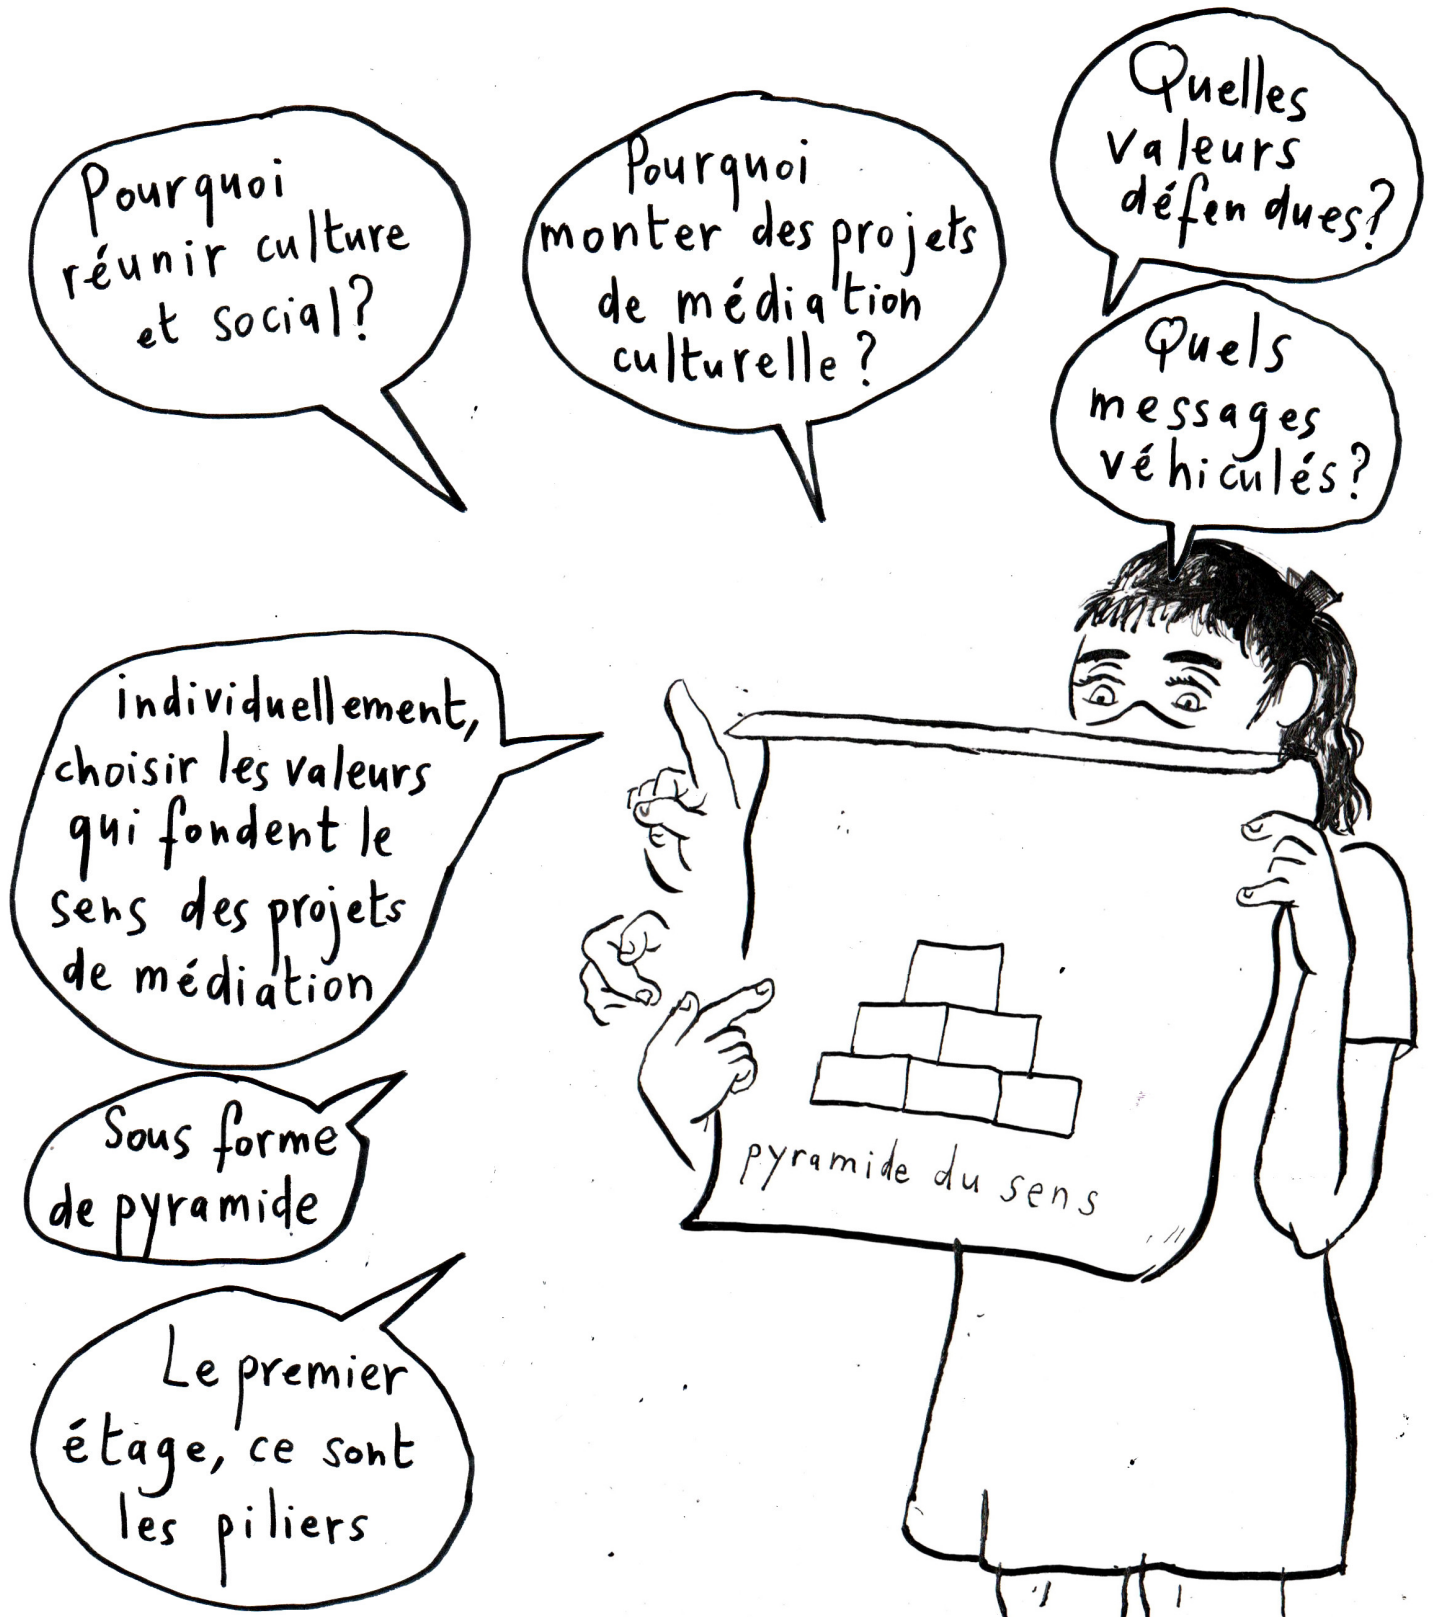 Pourquoi
réunir culture
et social?
Pourquoi
monter des projets
de médiation
culturelle?
Quelles
valeurs
défendues?
Quels
messages
véhiculés?
individuellement,
choisir les valeurs
qui fondent le
sens des projets
de médiation
Sous forme
de pyramide
Le premier
étage, ce sont
les piliers
pyramide du sens